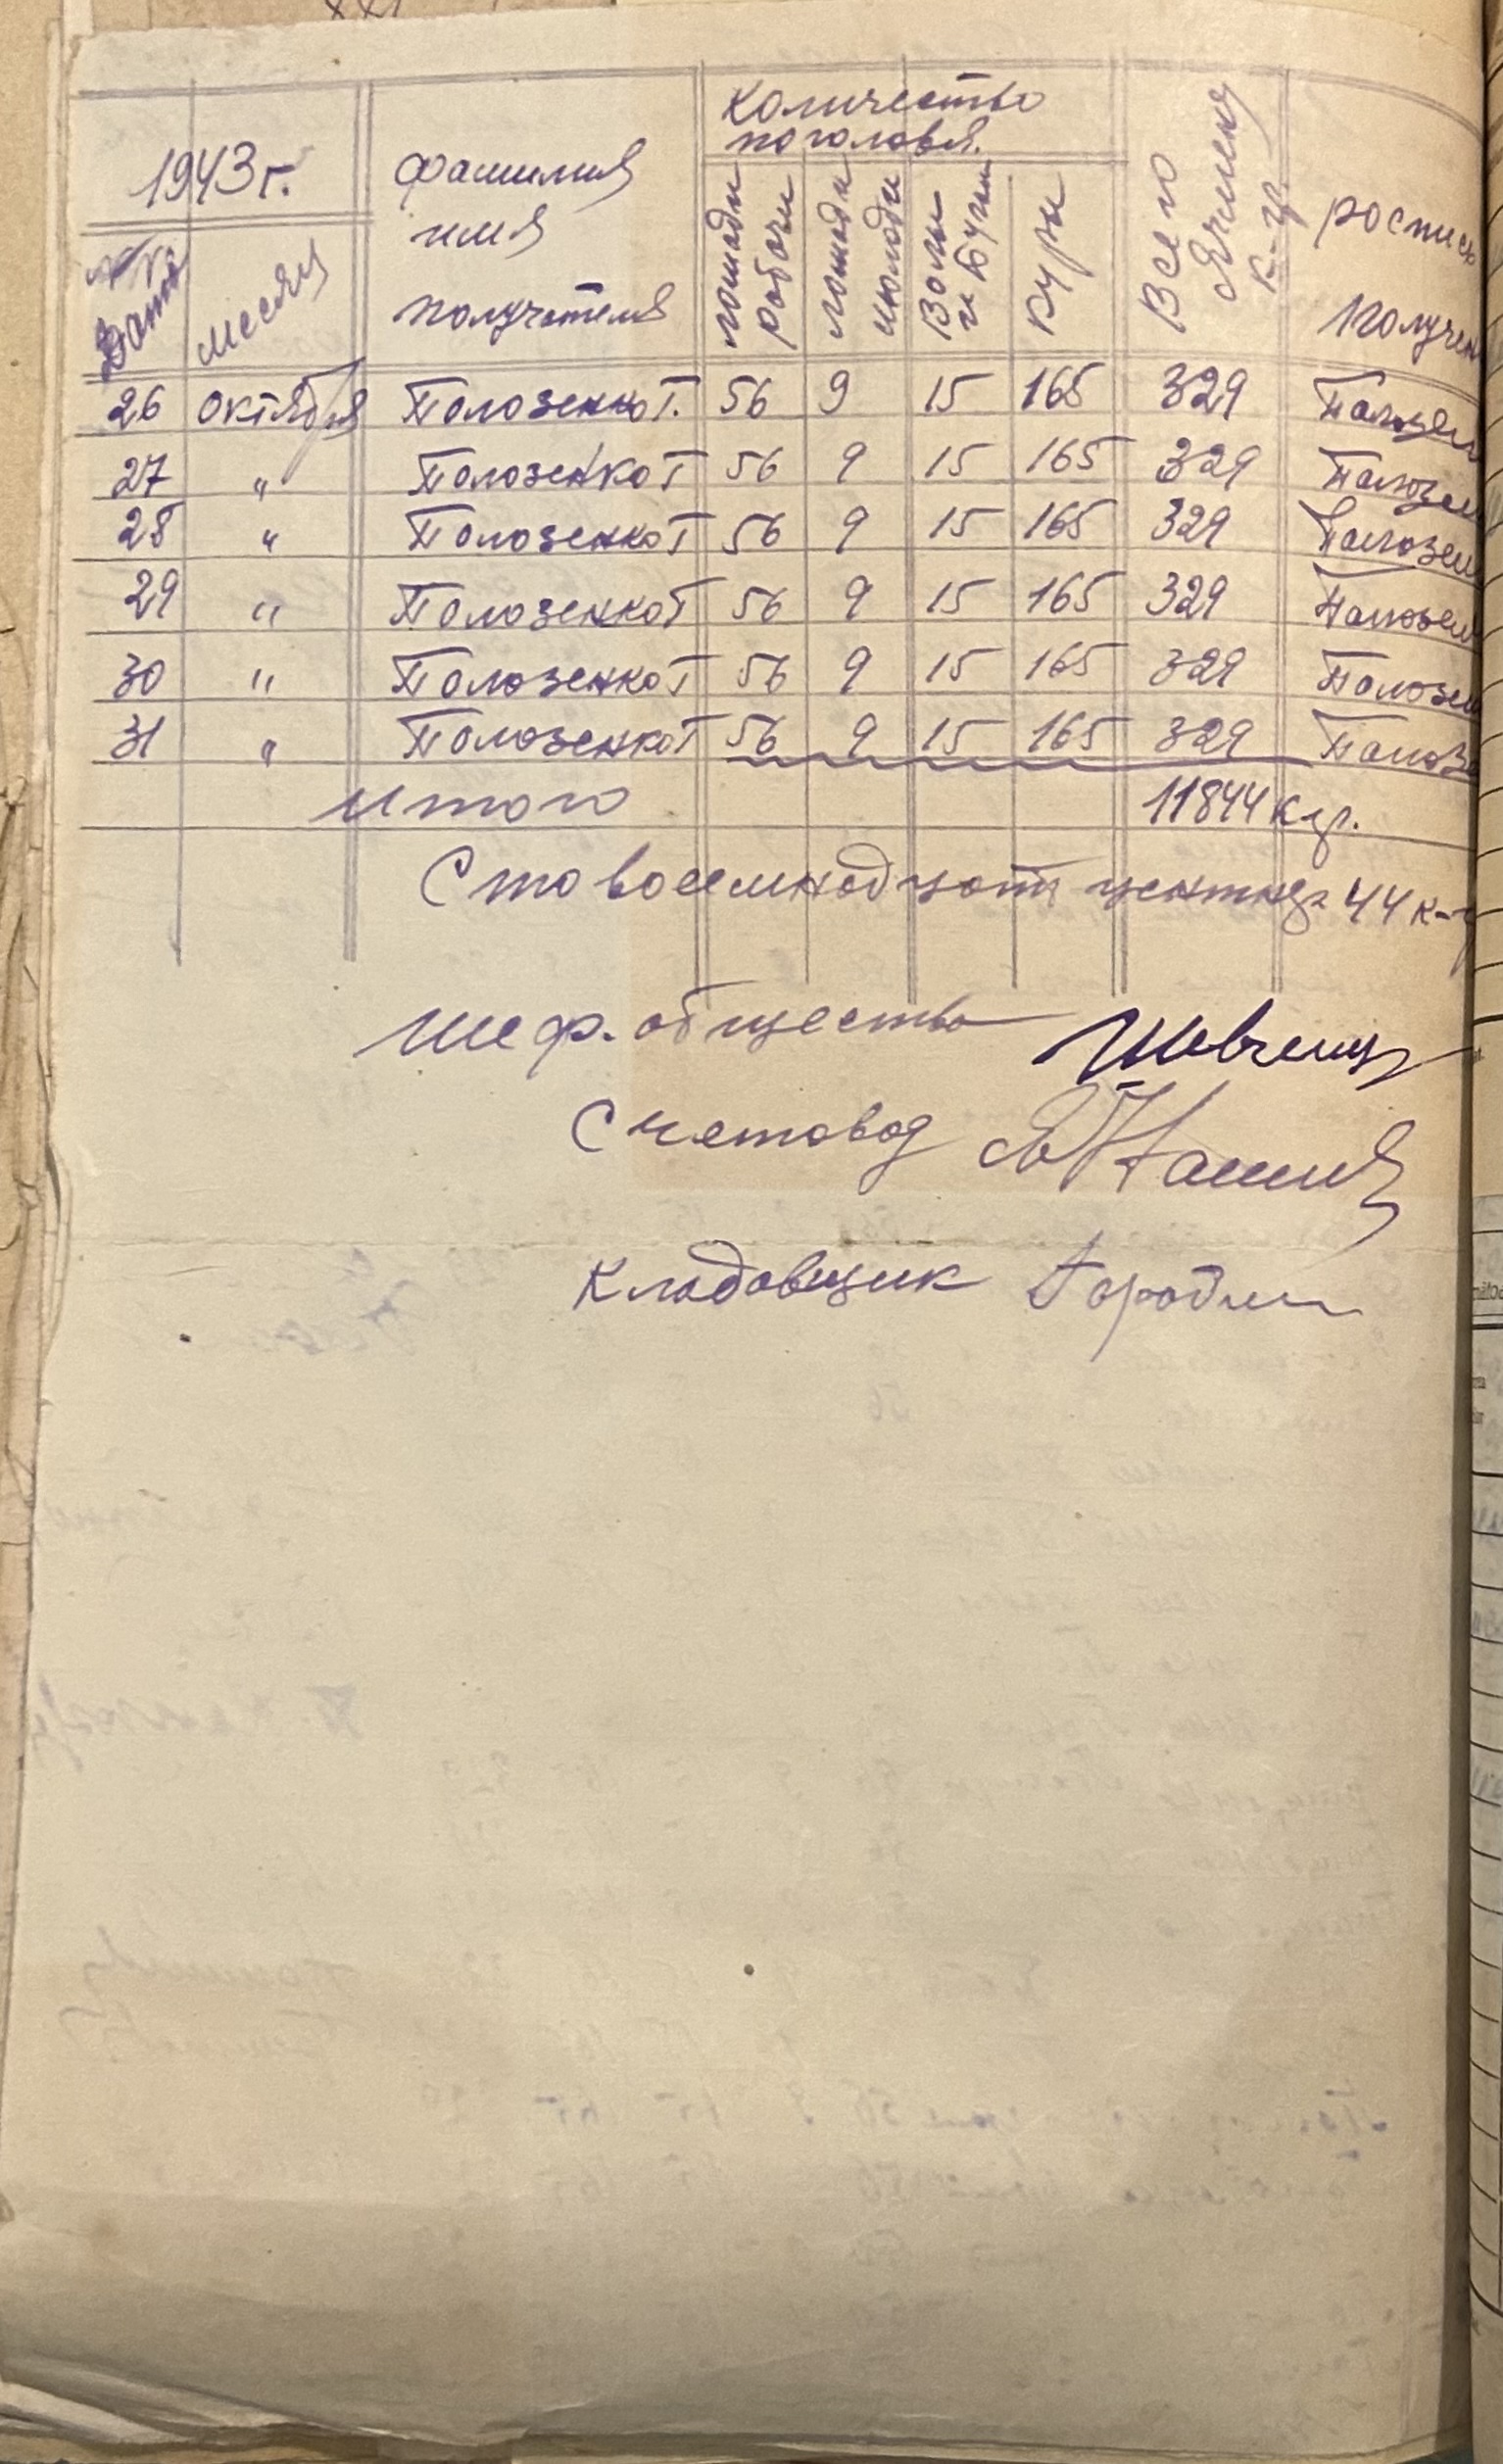 1943 г. фамилия имя получателя Количество поголовья. Всего Ячменя к-гр. роспись Получен
Дата месяц лошади рабочи лошади молодн Волы и Бугаи куры
26 октября Полозенко Т. 56 9 15 165 329 Полозен
27 " Полозенко Т 56 9 15 165 329 Полозен
28 " Полозенко Т 56 9 15 165 329 Полозен
29 " Полозенко Т 56 9 15 165 329 Полозен
30 " Полозенко Т 56 9 15 165 329 Полозен
31 " Полозенко Т 56 9 15 165 329 Полозе
Итого 11844 кгр.
Сто восемнодцать центнер 44 к-г
Шеф. общества Шевченко
Счетовод
Кладовщик